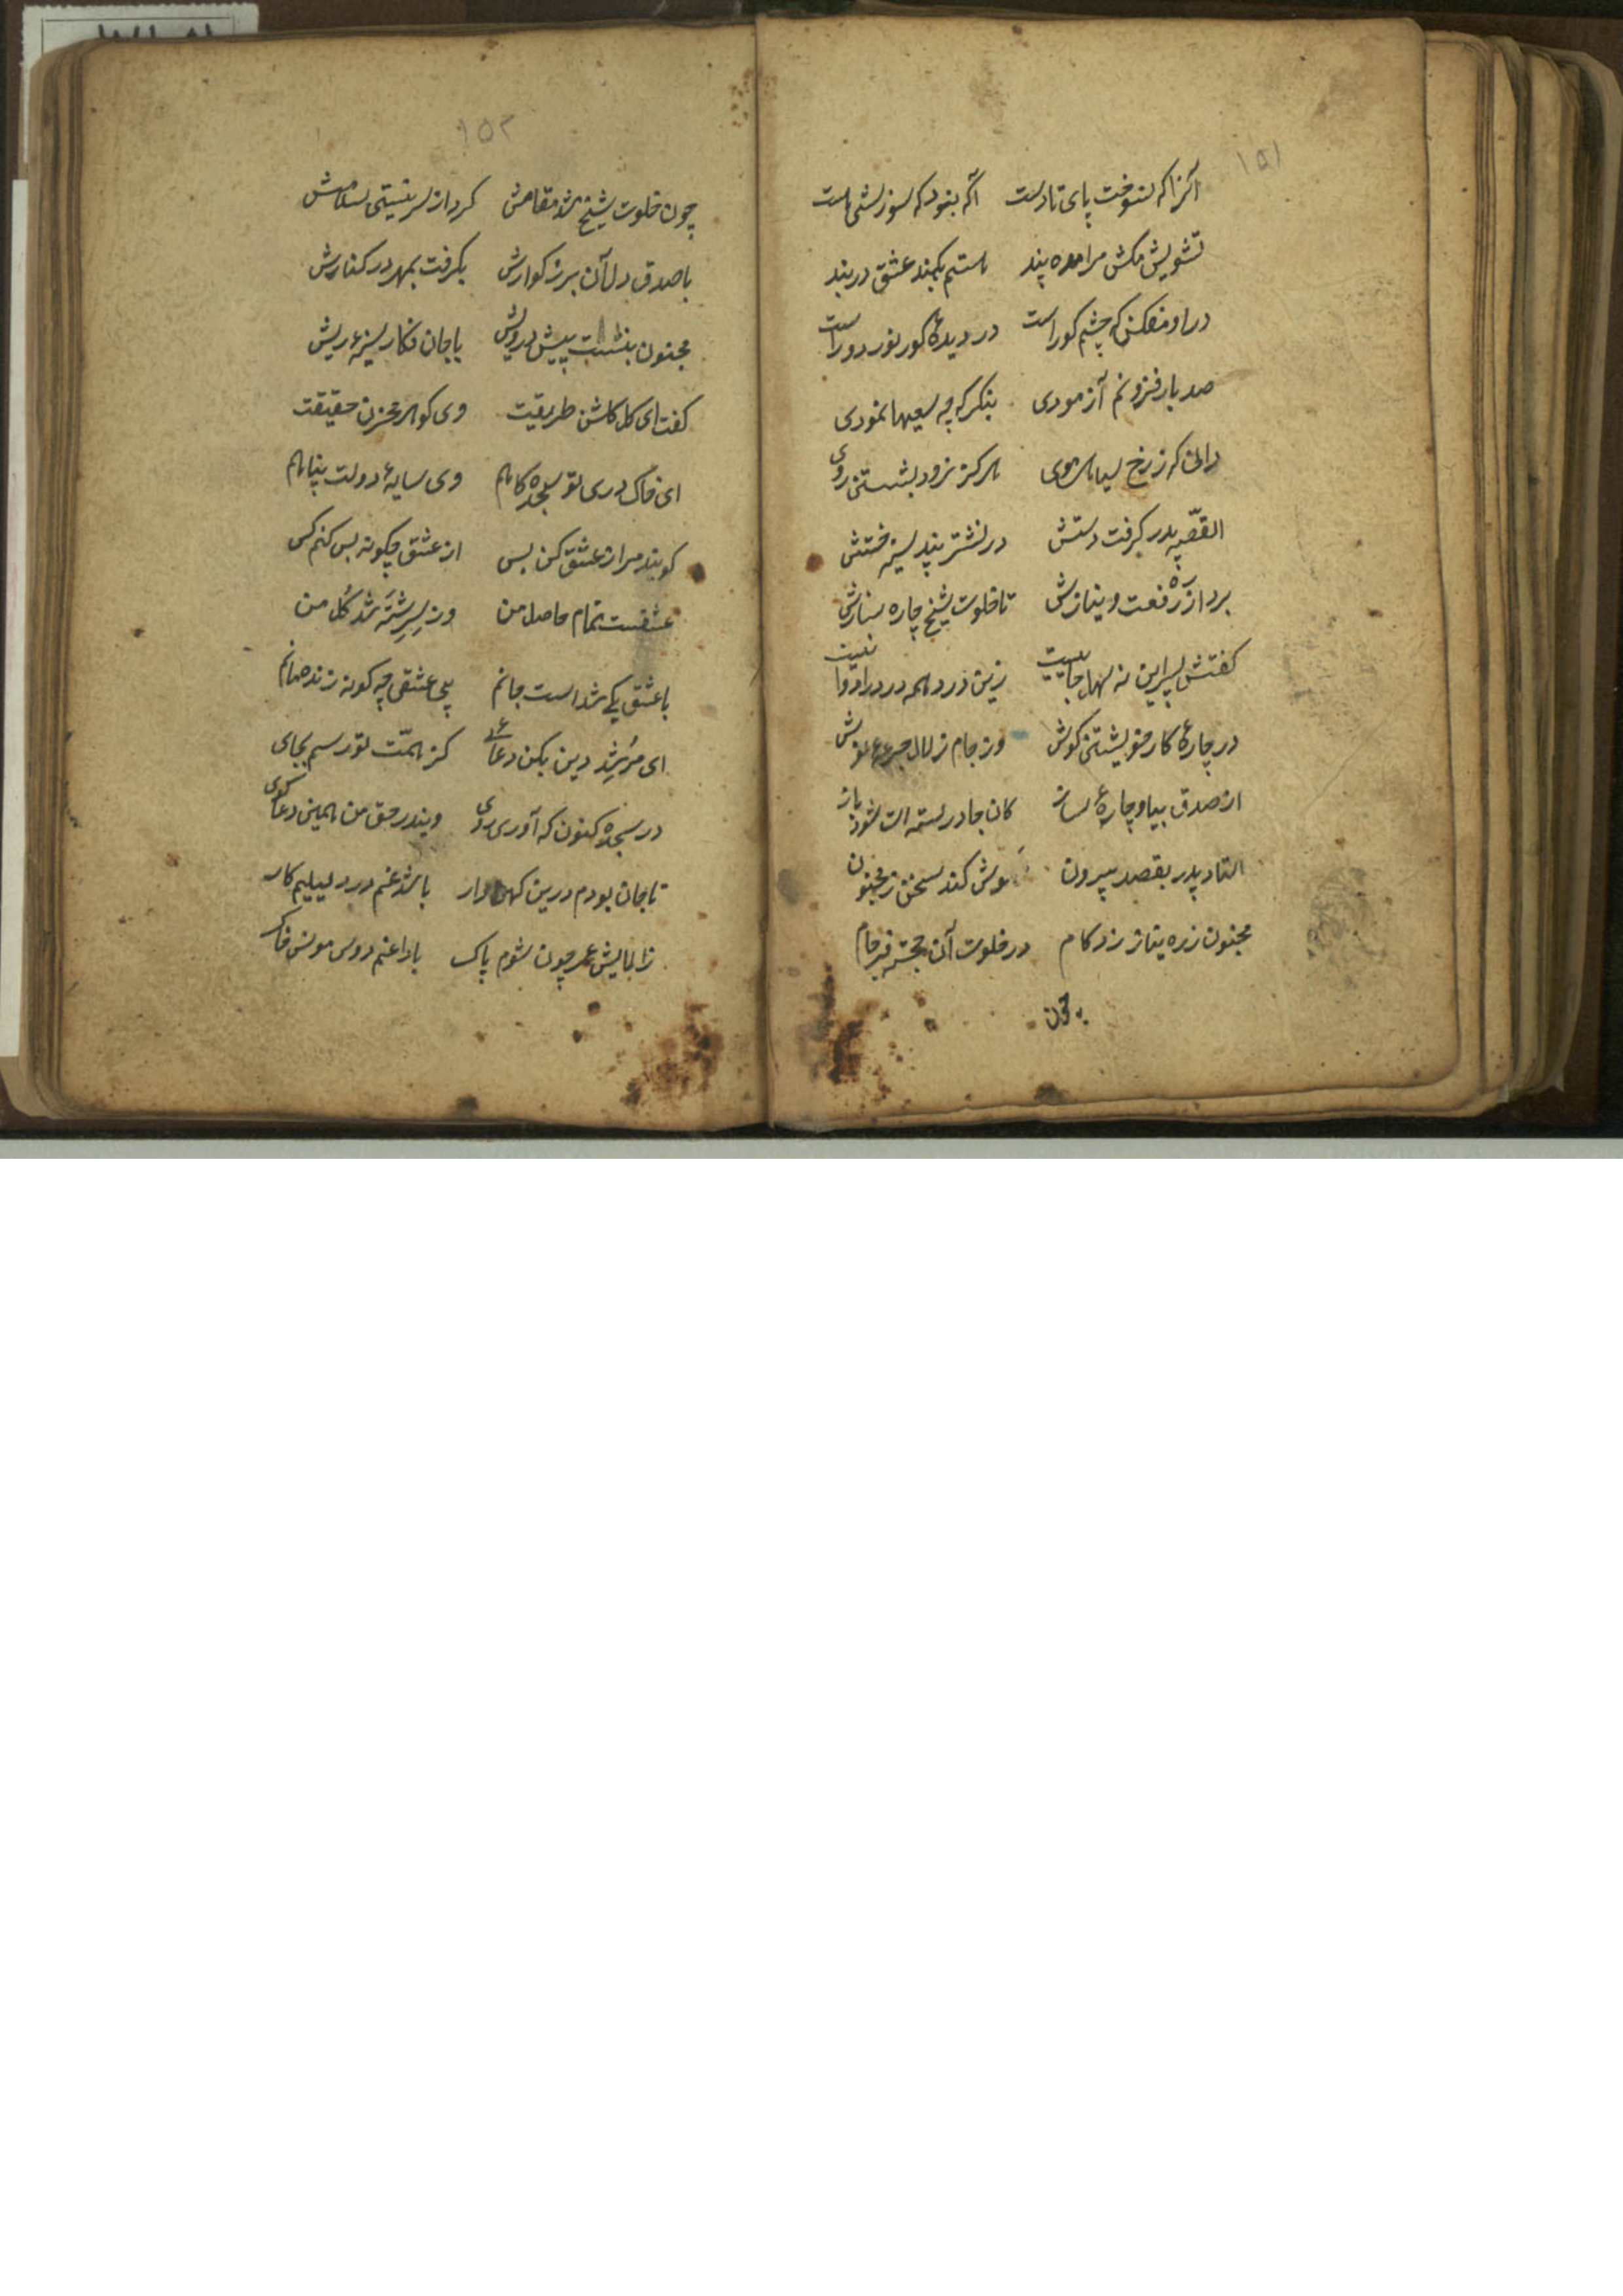 ۱۵۱
آنرا که نسوخت پای تا دست آگه نبود که سوزشی هست
تشویش مکش مرا مده پند هستم بکمند عشق در بند
در او مفکن که چشم کور است در دیدهٔ کور نور دور است
صد بار فزونم آزمودی بنکر که چه سعیها نمودی
دانی که ز رخ سیاه هندوی هرکز نرود بشستن روی
القصّه پدر کرفت دستش در نشتر پند سینه خستش
برد از ره رفعت و نیازش تا خلوت شیخ چاره سازش
کفتش پسر این نه سهل جاییست زین در همه درد را دوا نیست
در چارهٔ کار خویشتن کوش وز جام زلال جرعهٔ نوش
از صدق بیا و چارهٔ ساز کان جا در بسته ات شود باز
استاد پدر بقصد بیرون کوش کند سخن ز مجنون
مجنون ز ره نیاز زد کام در خلوت آن خجسته فرجام
چون
۱۵۲
چون خلوت شیخ شد مقامش کرد از سر نیستی سلامش
با صدق دل آن بزرکوارش بکرفت بمهر در کنارش
مجنون بنشست پیش درویش با جان فکار سینهٔ ریش
کفت ای کل کلشن طریقت وی کوهر مخزن حقیقت
ای خاک دری تو سجده کاهم وی سایهٔ دولت پناهم
کویند مرا ز عشق کن بس از عشق چکونه بس کنم کس
عشقست تمام حاصل من وز سرشته شد کُل من
با عشق یکی شد است جانم بی عشق چه کونه زنده مانم
ای مُرشِد دین بکن دعائے کز همّت تو رسم بجای
در سجده کنون که آوری روی ویندر حق من همین دعا کوی
تا جان بودم درین کهن دار باشد غم درد لیلیم کار
ز الایش عمر چون شوم پاک بادا غم دوس مونس خاک